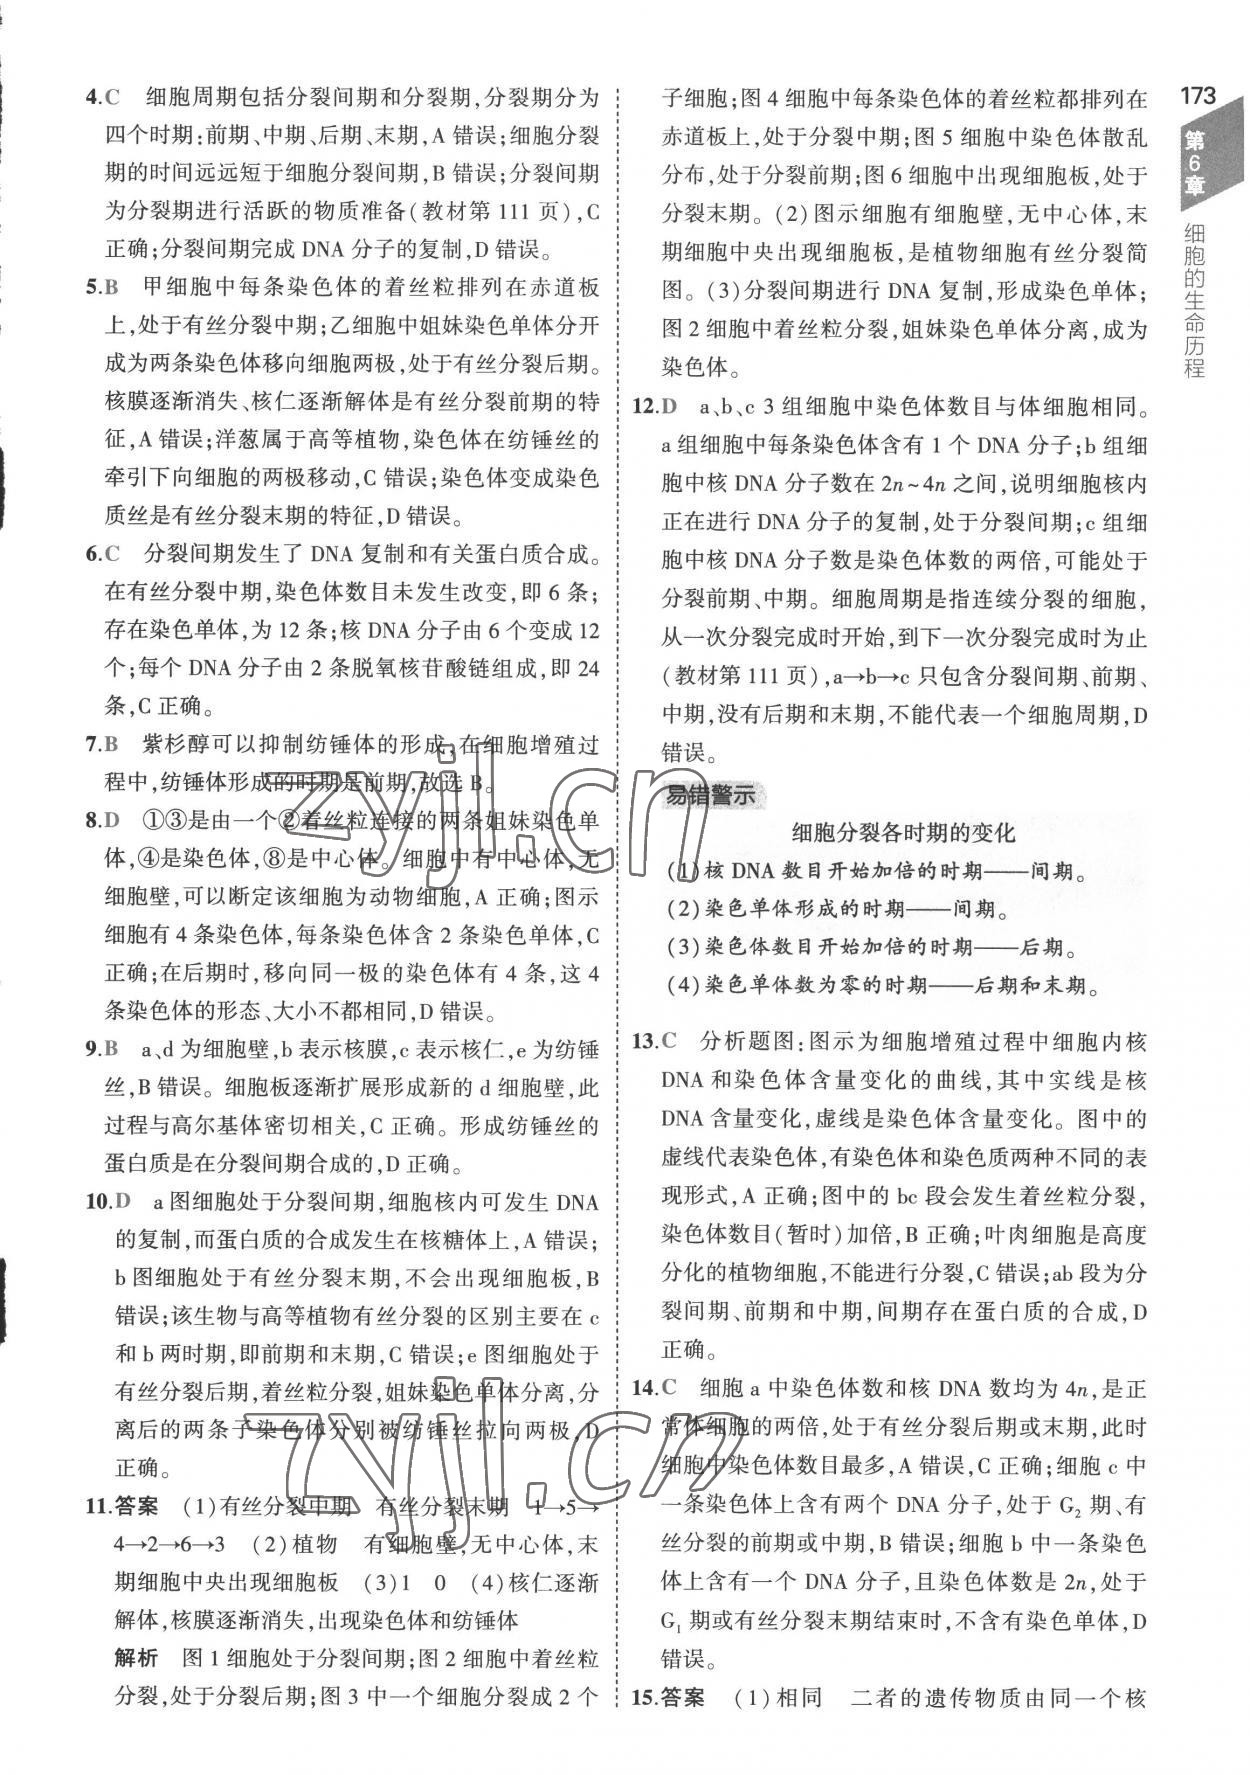 4.C 细胞周期包括分裂间期和分裂期,分裂期分为
四个时期:前期、中期、后期、末期,A 错误;细胞分裂
期的时间远远短于细胞分裂间期,B 错误;分裂间期
为分裂期进行活跃的物质准备(教材第 111 页),C
正确;分裂间期完成 DNA 分子的复制,D 错误。
5.B 甲细胞中每条染色体的着丝粒排列在赤道板
上,处于有丝分裂中期;乙细胞中姐妹染色单体分开
成为两条染色体移向细胞两极,处于有丝分裂后期。
核膜逐渐消失、核仁逐渐解体是有丝分裂前期的特
征,A 错误;洋葱属于高等植物,染色体在纺锤丝的
牵引下向细胞的两极移动,C 错误;染色体变成染色
质丝是有丝分裂末期的特征,D 错误。
6.C 分裂间期发生了 DNA 复制和有关蛋白质合成。
在有丝分裂中期,染色体数目未发生改变,即 6 条;
存在染色单体,为 12 条;核 DNA 分子由 6 个变成 12
个;每个 DNA 分子由 2 条脱氧核苷酸链组成,即 24
条,C 正确。
7.B 紫杉醇可以抑制纺锤体的形成,在细胞增殖过
程中,纺锤体形成的时期是前期,故选 B。
8.D ①③是由一个②着丝粒连接的两条姐妹染色单
体,④是染色体,⑧是中心体。细胞中有中心体,无
细胞壁,可以断定该细胞为动物细胞,A 正确;图示
细胞有 4 条染色体,每条染色体含 2 条染色单体,C
正确;在后期时,移向同一极的染色体有 4 条,这 4
条染色体的形态、大小不都相同,D 错误。
9.B a、d 为细胞壁,b 表示核膜,c 表示核仁,e 为纺锤
丝,B 错误。细胞板逐渐扩展形成新的 d 细胞壁,此
过程与高尔基体密切相关,C 正确。形成纺锤丝的
蛋白质是在分裂间期合成的,D 正确。
10.D a 图细胞处于分裂间期,细胞核内可发生 DNA
的复制,而蛋白质的合成发生在核糖体上,A 错误;
b 图细胞处于有丝分裂末期,不会出现细胞板,B
错误;该生物与高等植物有丝分裂的区别主要在 c
和 b 两时期,即前期和末期,C 错误;e 图细胞处于
有丝分裂后期,着丝粒分裂,姐妹染色单体分离,分
离后的两条子染色体分别被纺锤丝拉向两极,D
正确。
11.答案 (1)有丝分裂中期 有丝分裂末期 1→5→
4→2→6→3 (2)植物 有细胞壁,无中心体,末
期细胞中央出现细胞板 (3)1 0 (4)核仁逐渐
解体,核膜逐渐消失,出现染色体和纺锤体
解析 图 1 细胞处于分裂间期;图 2 细胞中着丝粒
分裂,处于分裂后期;图 3 中一个细胞分裂成 2 个
子细胞;图 4 细胞中每条染色体的着丝粒都排列在
赤道板上,处于分裂中期;图 5 细胞中染色体散乱
分布,处于分裂前期;图 6 细胞中出现细胞板,处于
分裂末期。(2)图示细胞有细胞壁,无中心体,末
期细胞中央出现细胞板,是植物细胞有丝分裂简
图。(3)分裂间期进行 DNA 复制,形成染色单体;
图 2 细胞中着丝粒分裂,姐妹染色单体分离,成为
染色体。
12.D a、b、c 3 组细胞中染色体数目与体细胞相同。
a 组细胞中每条染色体含有 1 个 DNA 分子;b 组细
胞中核 DNA 分子数在 2n~4n 之间,说明细胞核内
正在进行 DNA 分子的复制,处于分裂间期;c 组细
胞中核 DNA 分子数是染色体数的两倍,可能处于
分裂前期、中期。细胞周期是指连续分裂的细胞,
从一次分裂完成时开始,到下一次分裂完成时为止
(教材第 111 页),a→b→c 只包含分裂间期、前期、
中期,没有后期和末期,不能代表一个细胞周期,D
错误。
易错警示
细胞分裂各时期的变化
(1)核 DNA 数目开始加倍的时期——间期。
(2)染色单体形成的时期——间期。
(3)染色体数目开始加倍的时期——后期。
(4)染色单体数为零的时期——后期和末期。
13.C 分析题图:图示为细胞增殖过程中细胞内核
DNA 和染色体含量变化的曲线,其中实线是核
DNA 含量变化,虚线是染色体含量变化。图中的
虚线代表染色体,有染色体和染色质两种不同的表
现形式,A 正确;图中的 bc 段会发生着丝粒分裂,
染色体数目(暂时)加倍,B 正确;叶肉细胞是高度
分化的植物细胞,不能进行分裂,C 错误;ab 段为分
裂间期、前期和中期,间期存在蛋白质的合成,D
正确。
14.C 细胞 a 中染色体数和核 DNA 数均为 4n,是正
常体细胞的两倍,处于有丝分裂后期或末期,此时
细胞中染色体数目最多,A 错误,C 正确;细胞 c 中
一条染色体上含有两个 DNA 分子,处于 G₂ 期、有
丝分裂的前期或中期,B 错误;细胞 b 中一条染色
体上含有一个 DNA 分子,且染色体数是 2n,处于
G₁ 期或有丝分裂末期结束时,不含有染色单体,D
错误。
15.答案 (1)相同 二者的遗传物质由同一个核
173
第6章
细胞的生命历程
zyjl.cn
zyjl.cn